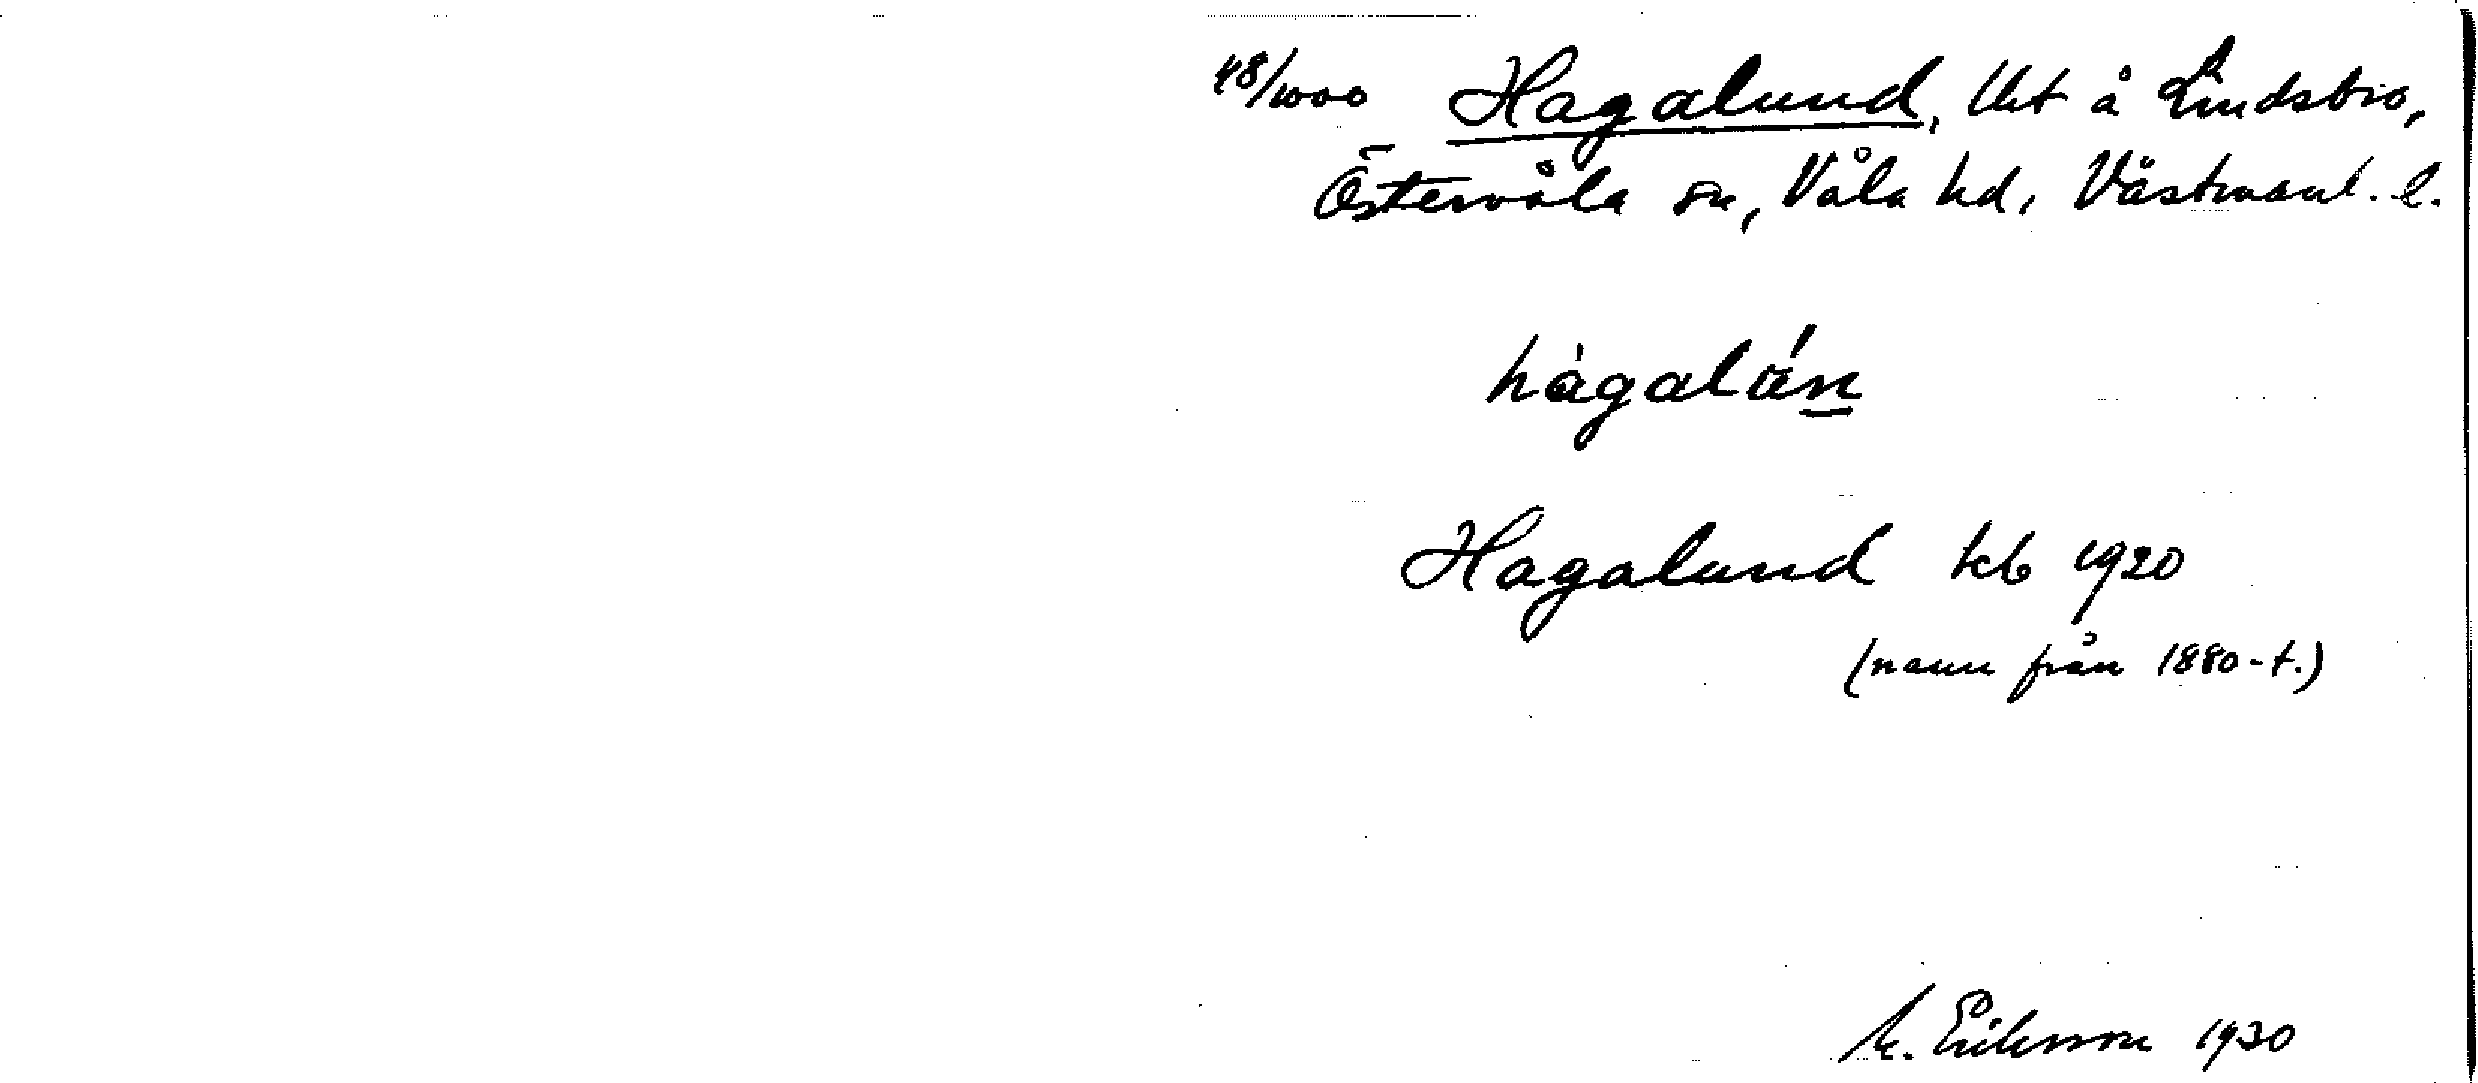 48/1000 Hagalund, lht å Lindsbro,
Östervåla sn, Våla hd, Västmanl. l.
hàgalún
Hagalund kb 1920
(namn från 1880-t.)
M. Eriksson 1930